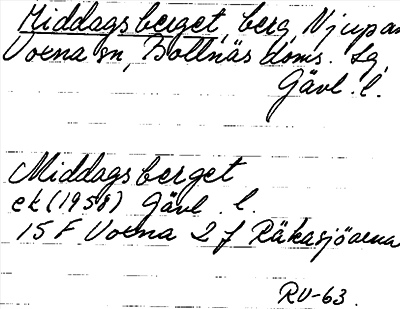 Middagsberget, berg, Njupan
Voxna sn, Bollnäs doms. sg,
Gävl. l.
Middagsberget
ek (1958) Gävl. l.
15 F Voxna 2 f Räkasjöarna
RV-63.